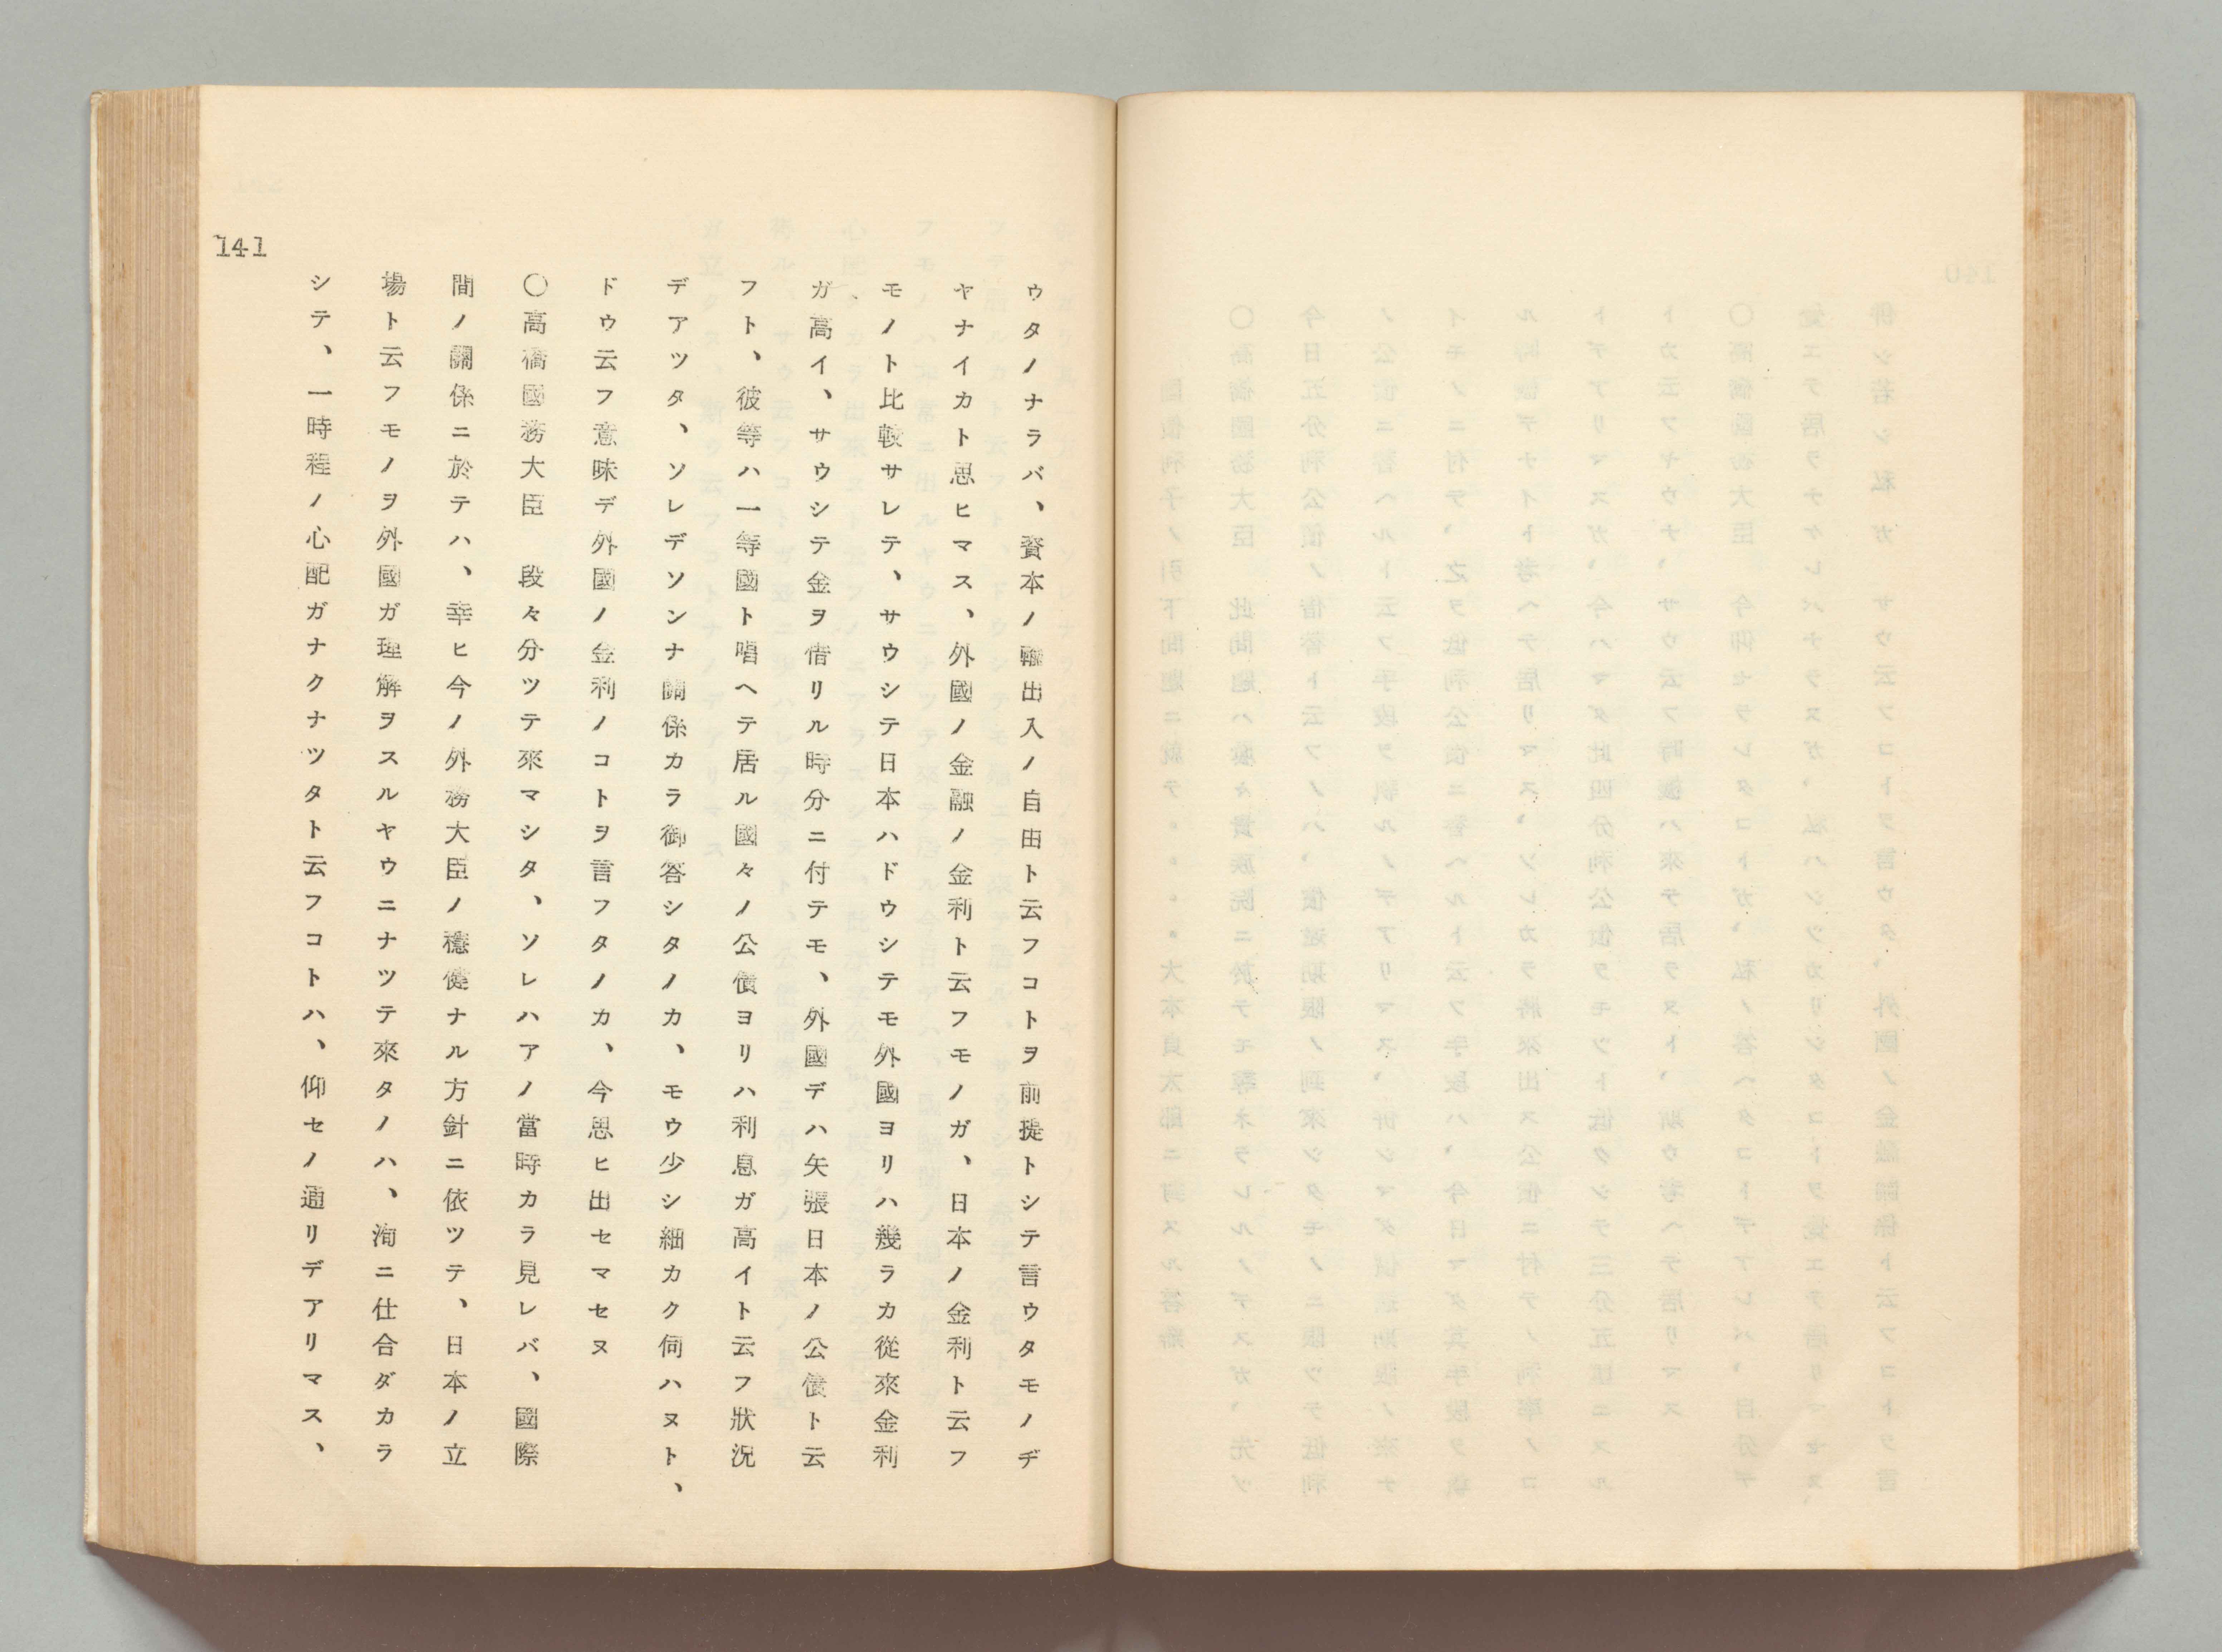 ウタノナラバ、資本ノ輸出入ノ自由ト云フコトヲ前提トシテ言ウタモノヂ
ヤナイカト思ヒマス、外國ノ金融ノ金利ト云フモノガ、日本ノ金利ト云フ
モノト比較サレテ、サウシテ日本ハドウシテモ外國ヨリハ幾ラカ從來金利
ガ高イ、サウシテ金ヲ借リル時分ニ付テモ、外國デハ矢張日本ノ公債ト云
フト、彼等ハ一等國ト唱ヘテ居ル國々ノ公債ヨリハ利息ガ高イト云フ狀況
デアツタ、ソレデソンナ關係カラ御答シタノカ、モウ少シ細カク伺ハヌト、
ドウ云フ意味デ外國ノ金利ノコトヲ言フタノカ、今思ヒ出セマセヌ
〇高橋國務大臣　段々分ツテ來マシタ、ソレハアノ當時カラ見レバ、國際
間ノ關係ニ於テハ、幸ヒ今ノ外務大臣ノ穩健ナル方針ニ依ツテ、日本ノ立
場ト云フモノヲ外國ガ理解ヲスルヤウニナツテ來タノハ、洵ニ仕合ダカラ
シテ、一時程ノ心配ガナクナツタト云フコトハ、仰セノ通リデアリマス、
141